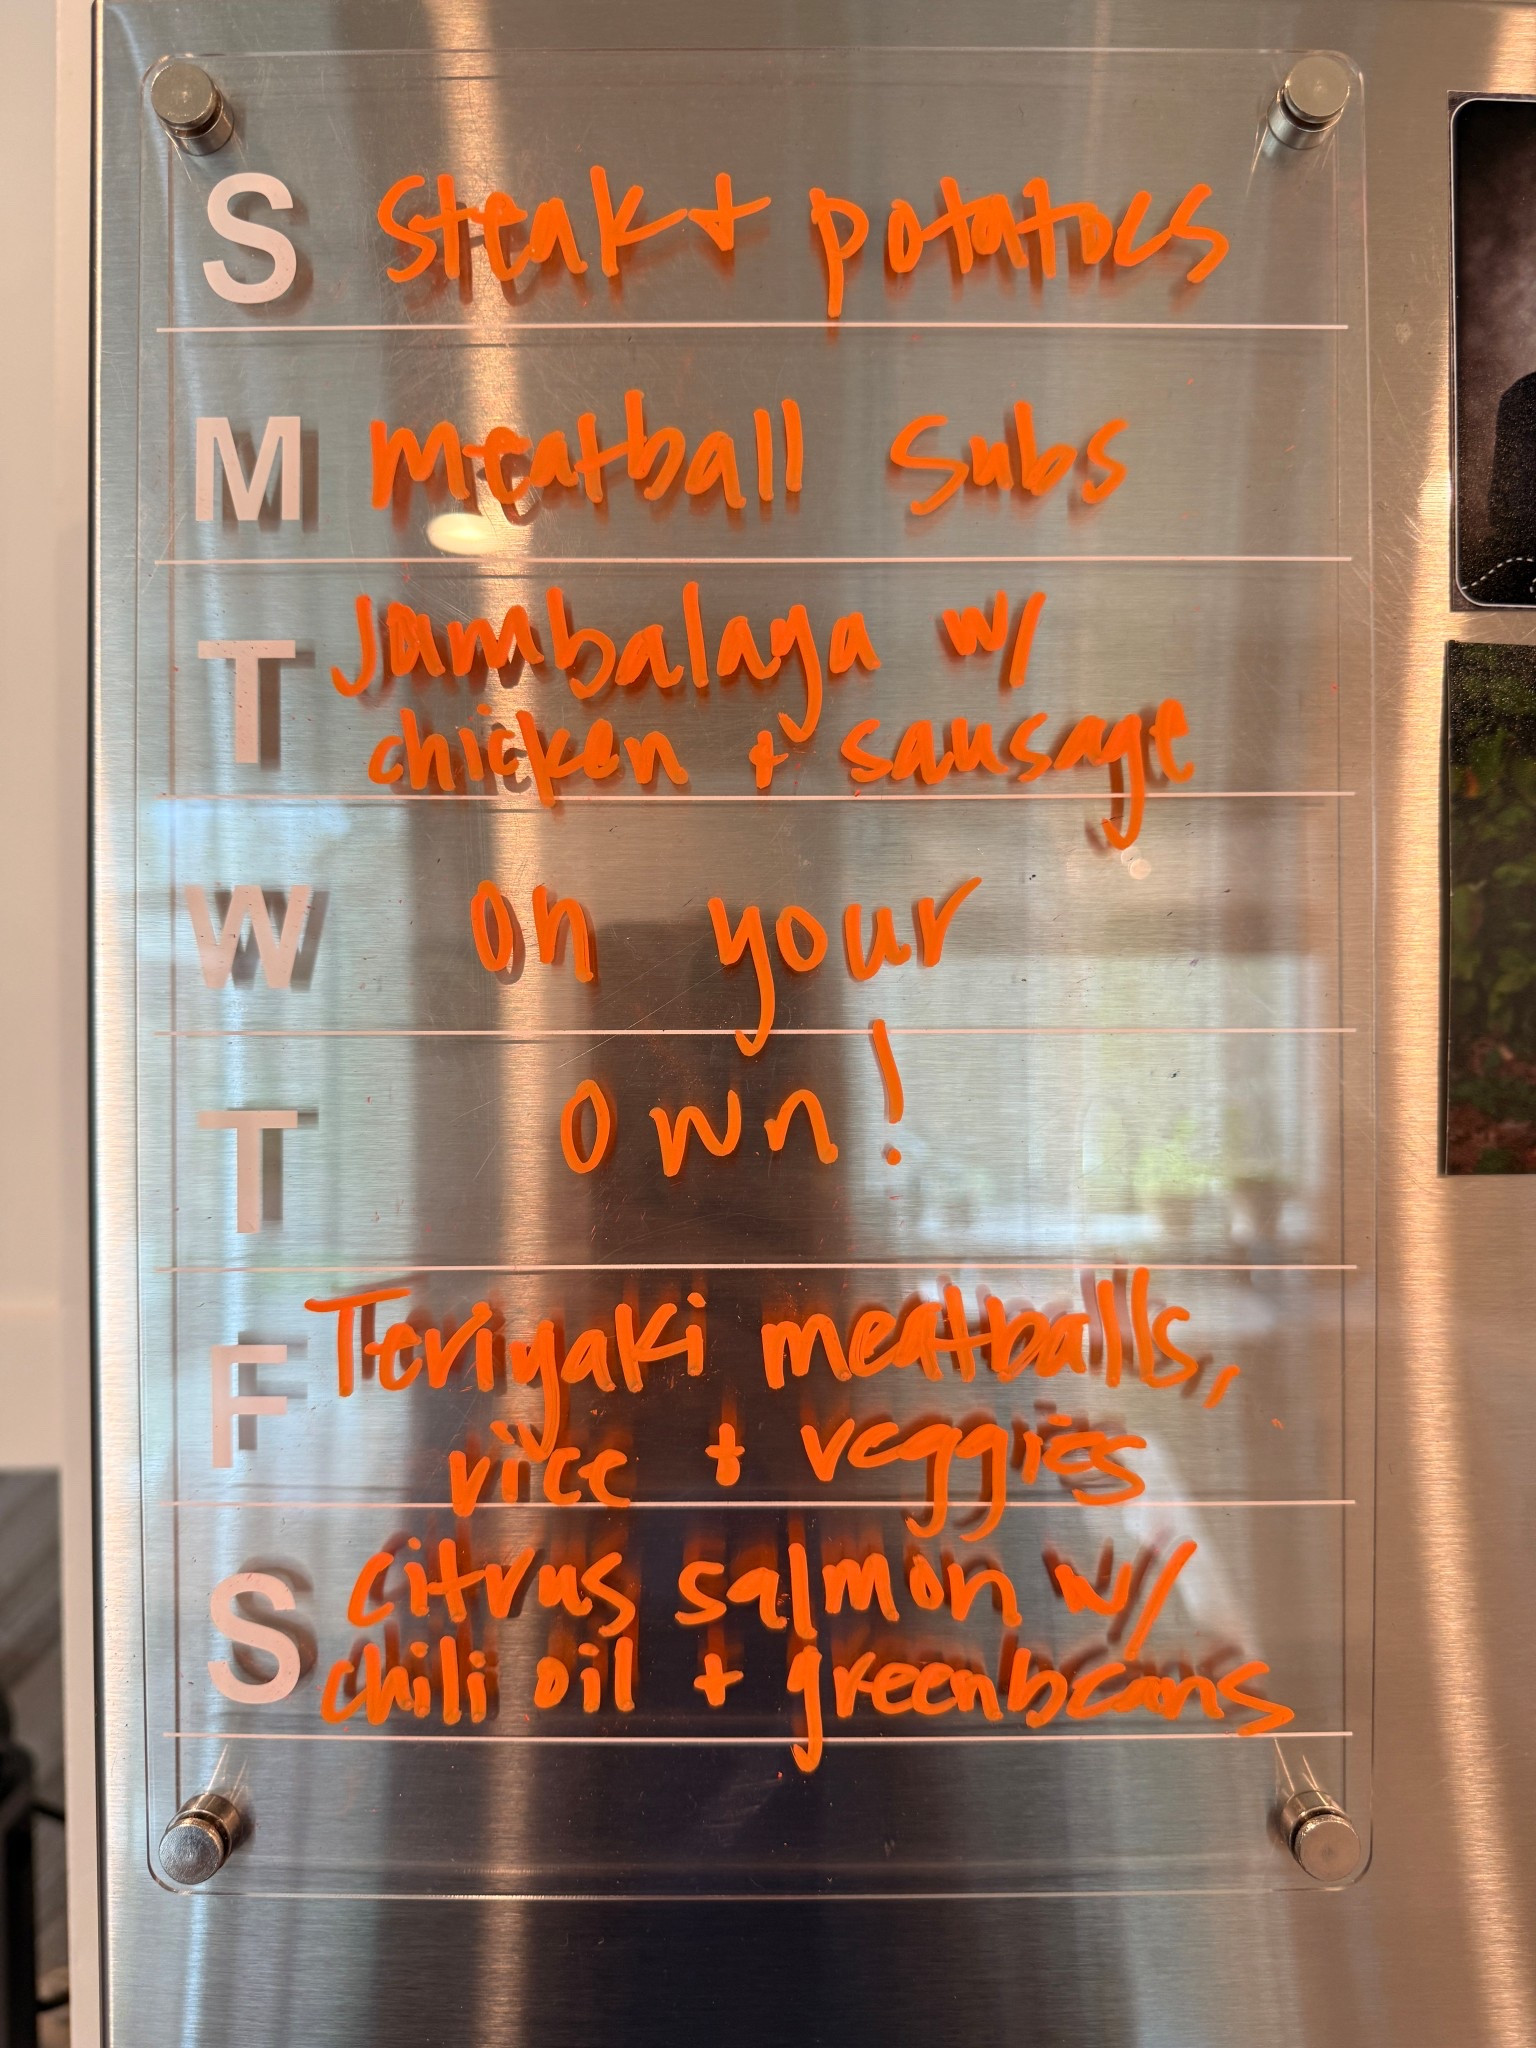 S Steak + potatoes
M Meatball Subs
Jambalaya w/
T chicken + sausage
W on your
T own!
Teriyaki meatballs,
F rice + veggies
citrus salmon w/
S chili oil + greenbeans